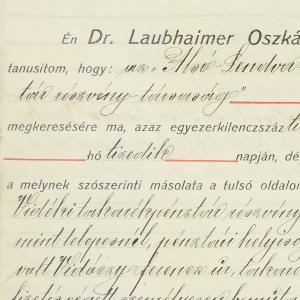 Én Dr. Laubhaimer Oszká
tanusitom, hogy: az "Alsó-Lendva
tár részvény-társaság"
megkeresésére ma, azaz egyezerkilenczszáz t
hó tizedik napján, dé
a melynek szószerinti másolata a tulsó oldalon
Vidéki takarékpénztár részvény
mint telepesnél, pénztári helyisé
volt Vidóczy Ferenc úr, takar